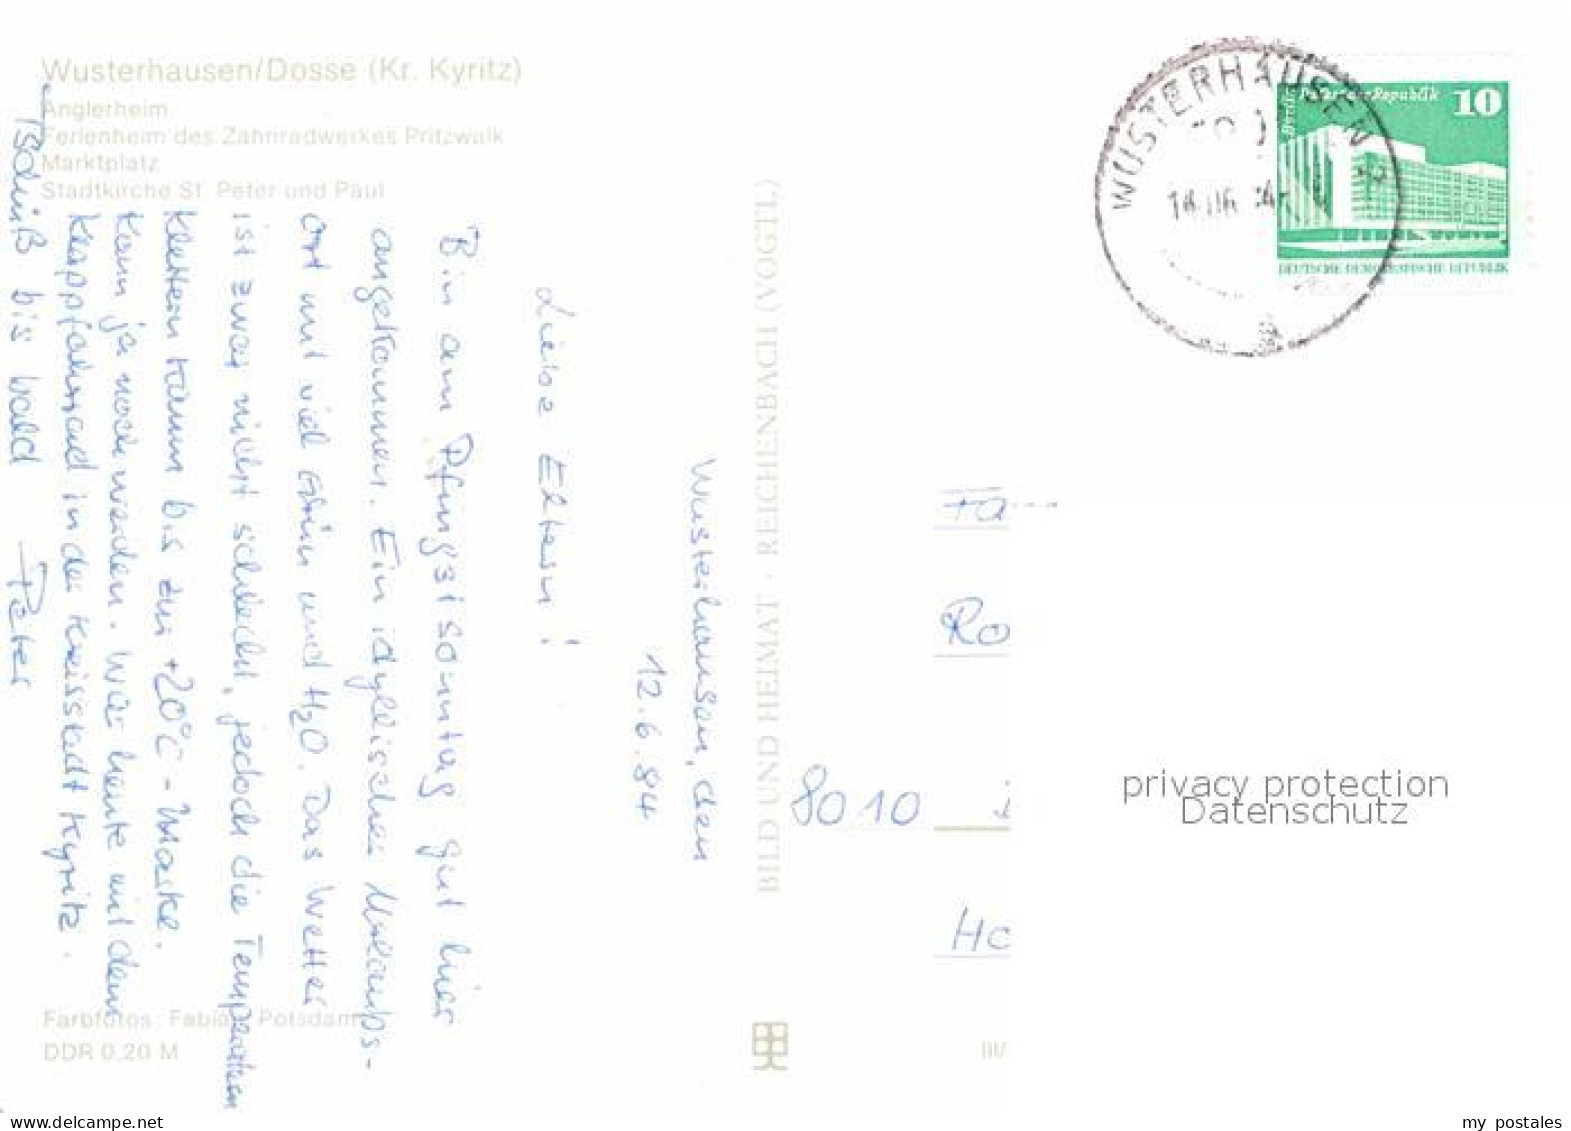 Wusterhausen/Dosse (Kr. Kyritz)
Anglerheim
Ferienheim des Zahnradwerkes Pritzwalk
Marktplatz
Stadtkirche St. Peter und Paul
Wusterhausen, den
12.6.84
Liebe Eltern!
Bin am Pfingstsonntag gut hier
angekommen. Ein idyllischer Urlaubs-
ort mit viel Grün und H₂O. Das Wetter
ist zwar nicht schlecht, jedoch die Temperaturen
klettern kaum bis zur +20°C - Marke.
Kann ja noch werden. War heute mit dem
Klappfahrrad in der Kreisstadt Kyritz.
Tschüß bis bald Peter
Farbfotos: Fabian, Potsdam
DDR 0,20 M
BILD UND HEIMAT · REICHENBACH (VOGTL)
III/
WUSTERHAUSEN
Berlin Palast der Republik
10
DEUTSCHE DEMOKRATISCHE REPUBLIK
Fa
Ro
8010
Ho
privacy protection
Datenschutz
www.delcampe.net
my_postales